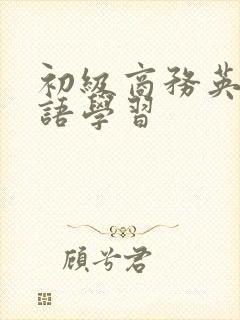 初級商務英
語學習
顧兮君